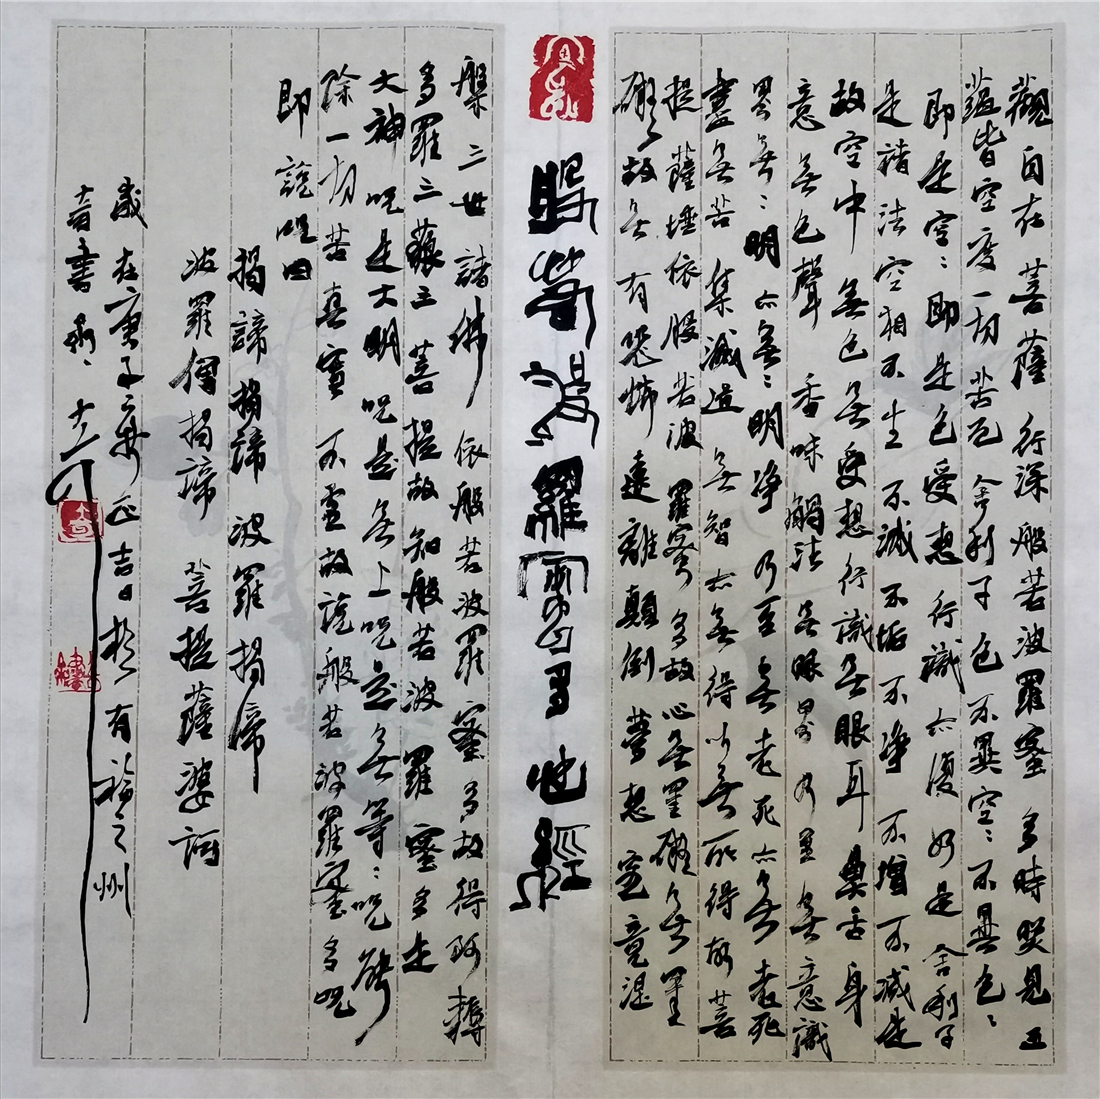 觀自在菩薩行深般若波羅蜜多時照見五
蘊皆空度一切苦厄舍利子色不異空:不異色:
即是空:即是色受想行識亦復如是舍利子
是諸法空相不生不滅不垢不淨不增不減是
故空中無色無受想行識無眼耳鼻舌身
意無色聲香味觸法無眼界乃至無意識
界無:明亦無:明淨乃至無老死亦無老死
盡無苦集滅道無智亦無得以無所得故菩
提薩埵依般若波羅蜜多故心無罣礙無罣
礙故無有恐怖遠離顛倒夢想究竟涅
般若波羅蜜多心經
槃三世諸佛依般若波羅蜜多故得阿耨
多羅三藐三菩提故知般若波羅蜜多是
大神咒是大明咒是無上咒是無等:咒能
除一切苦真實不虛故說般若波羅蜜多咒
即說咒曰
揭諦揭諦波羅揭諦
波羅僧揭諦菩提薩婆訶
歲在庚子之年正吉日於有福之州
書